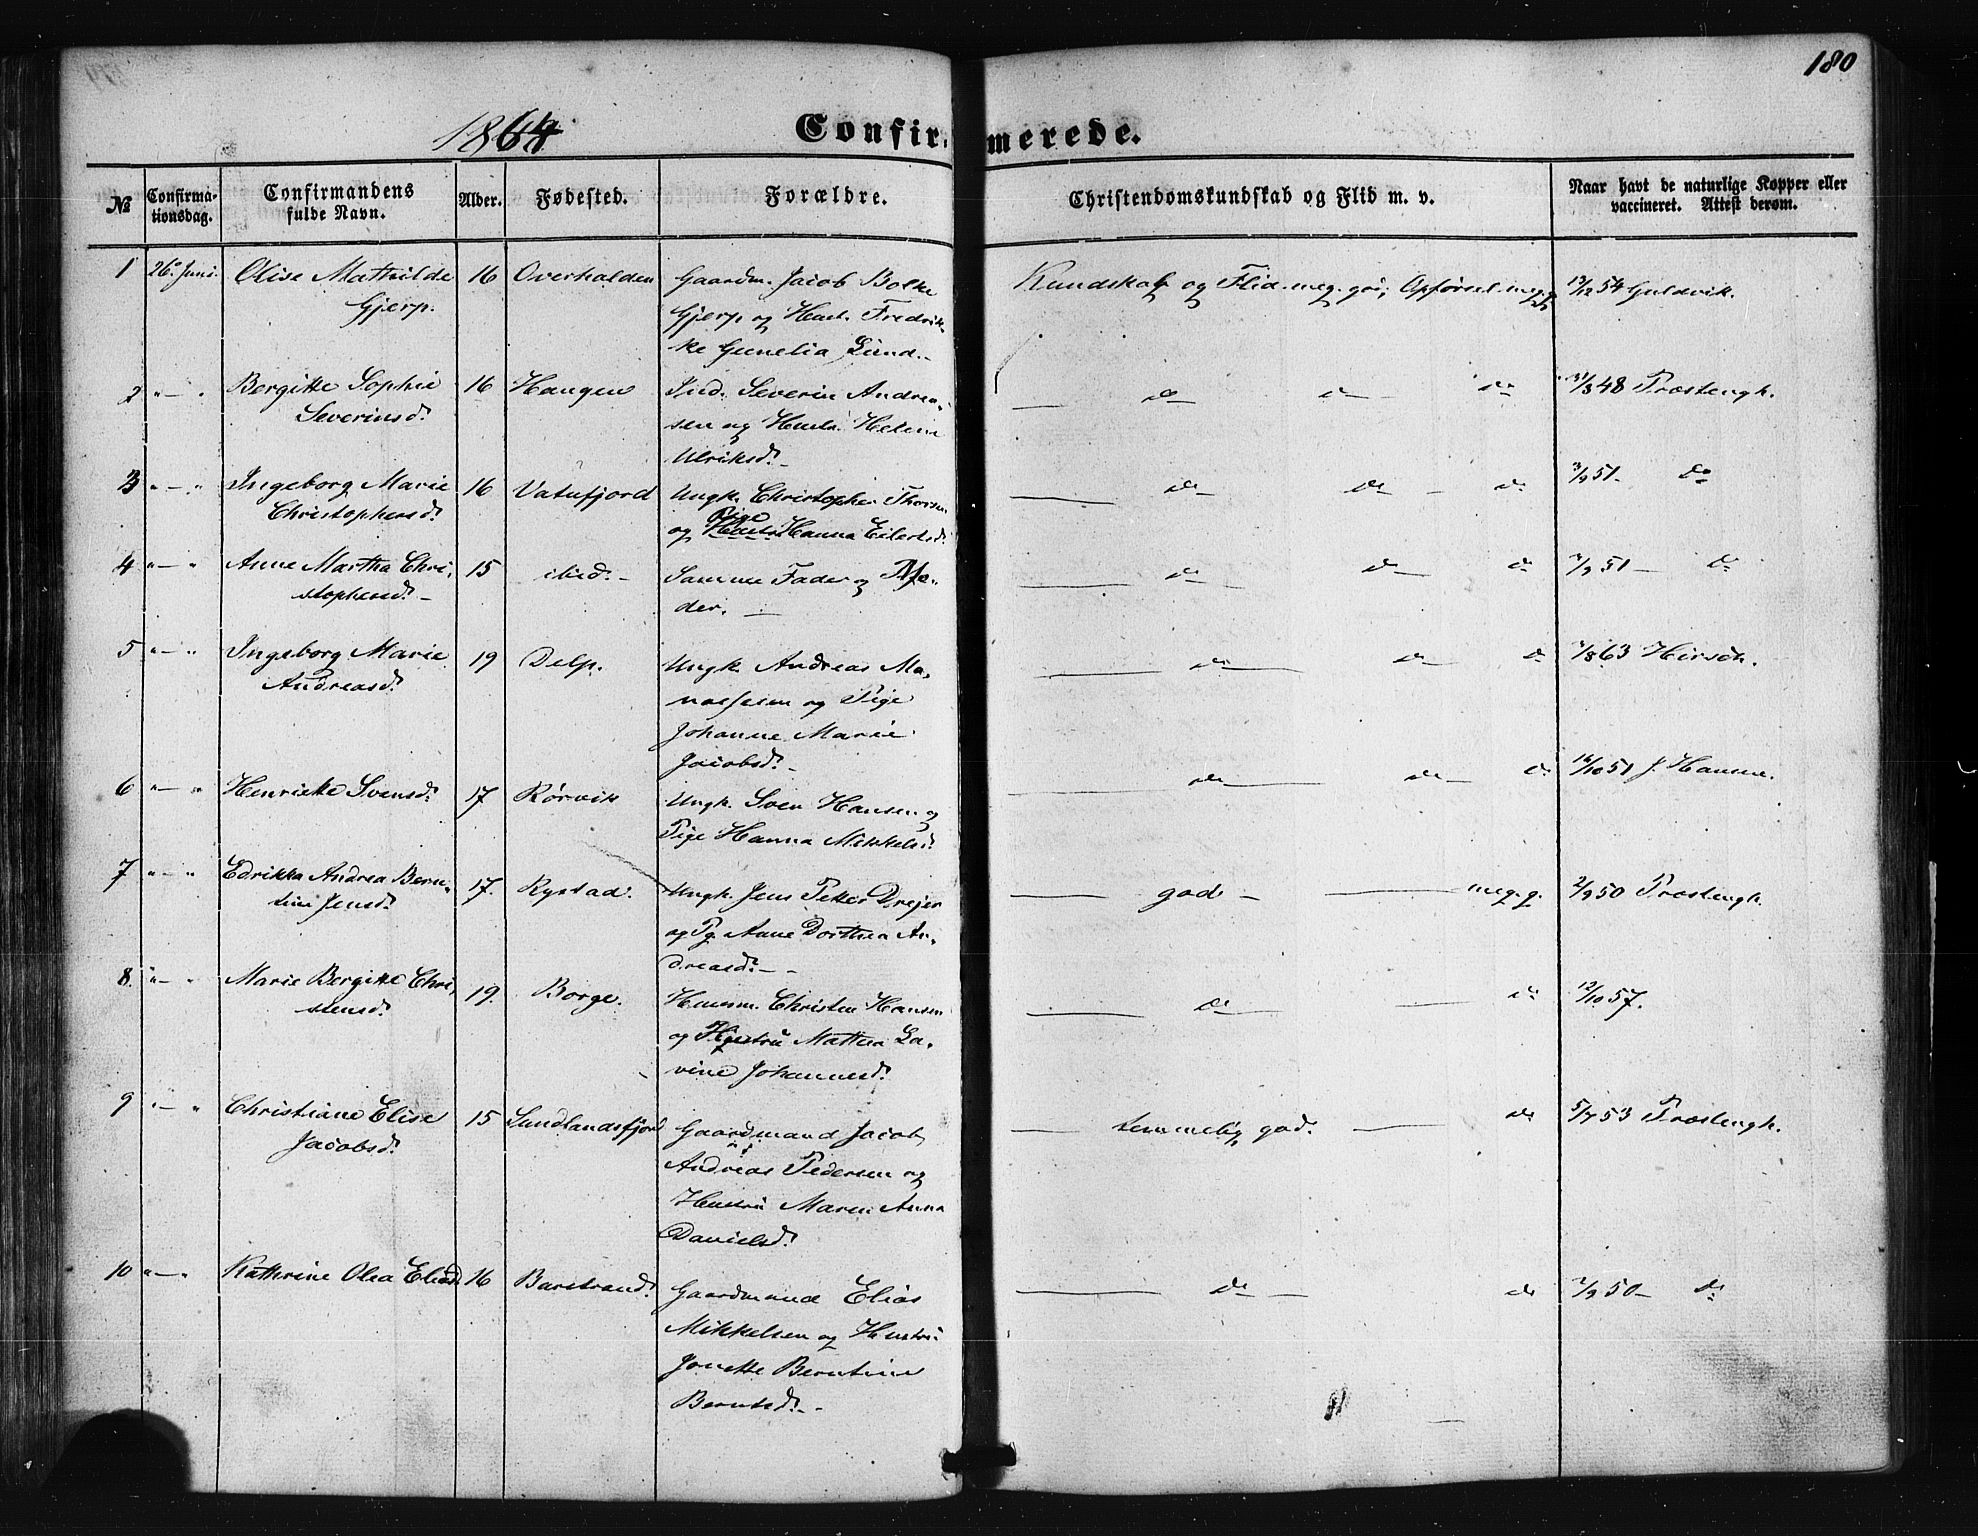 180
1864 Confirmerede.
№ Confirmationsdag. Confirmandens fulde Navn. Alder. Fødested. Forældre. Christendomskundskab og Flid m. v. Naar havt de naturlige Kopper eller vaccineret. Attest derom.
1 26. Juni. Olise Mathilde 16 Overhalden Gaardm. Jacob Bolke Kundskab og Flid meg. god; Opførsel meg. g. 13/12 54 Guldvik.
Gjerp. Gjerp og Hust. Fredrik-
ke Gunelia Lund.
2 " — " Bergitte Sophie 16 Haugen Ind. Severin Andrea- do do do 31/3 48 Præstengh.
Severinsd. sen og Hustr.
Ulriksd.
3 " — " Ingeborg Marie 16 Vatufjord Ungk. Christopher Thorsen do do do 3/9 51 do
Christophersd. og Pige Hanna Eilertsd.
4 " — " Anne Martha Chri- 15 ibid. Samme Fader og Mo- do do do 3/9 51 — do
stophersd. der.
5 " — " Ingeborg Marie 19 Delp. Ungk. Andreas Ma- do do do 1/8 63 Hirsch.
Andreasd. og Pige
Johanne Marie
Jacobsd.
6 " — " Henrikke Svensd. 17 Rørvik Ungk. Sven Hansen og do do do 16/10 51 J. Hansen.
Pige Hanna Mikkelsd.
7 " — " Edrikka Andrea Bern- 17. Rystad. Ungk. Jens Petter Drejer god — meg. g. 2/9 50 Præstengh.
tine Jensd. og Pg. Anne Dorthea An-
dreasd.
8. " — " Marie Bergitte Chri- 19. Borge. Huusm. Christen Hansen do do 12/10 57.
stensd. og Hustru Mathea La-
vine Johannesd.
9 " — " Christiane Elise 15 Sundlandsfjord Gaardmand Jacob temmelig god. do 5/7 53 Præstengh.
Jacobsd. Andreas Pedersen og
Hustru Maren Anna
Danielsd.
10 " — " Kathrine Olea Eliasd. 16 Barstrand. Gaardmand Elias do do 2/9 50 — do
Mikkelsen og Hustru
Jonette Berntine
Berntsd.